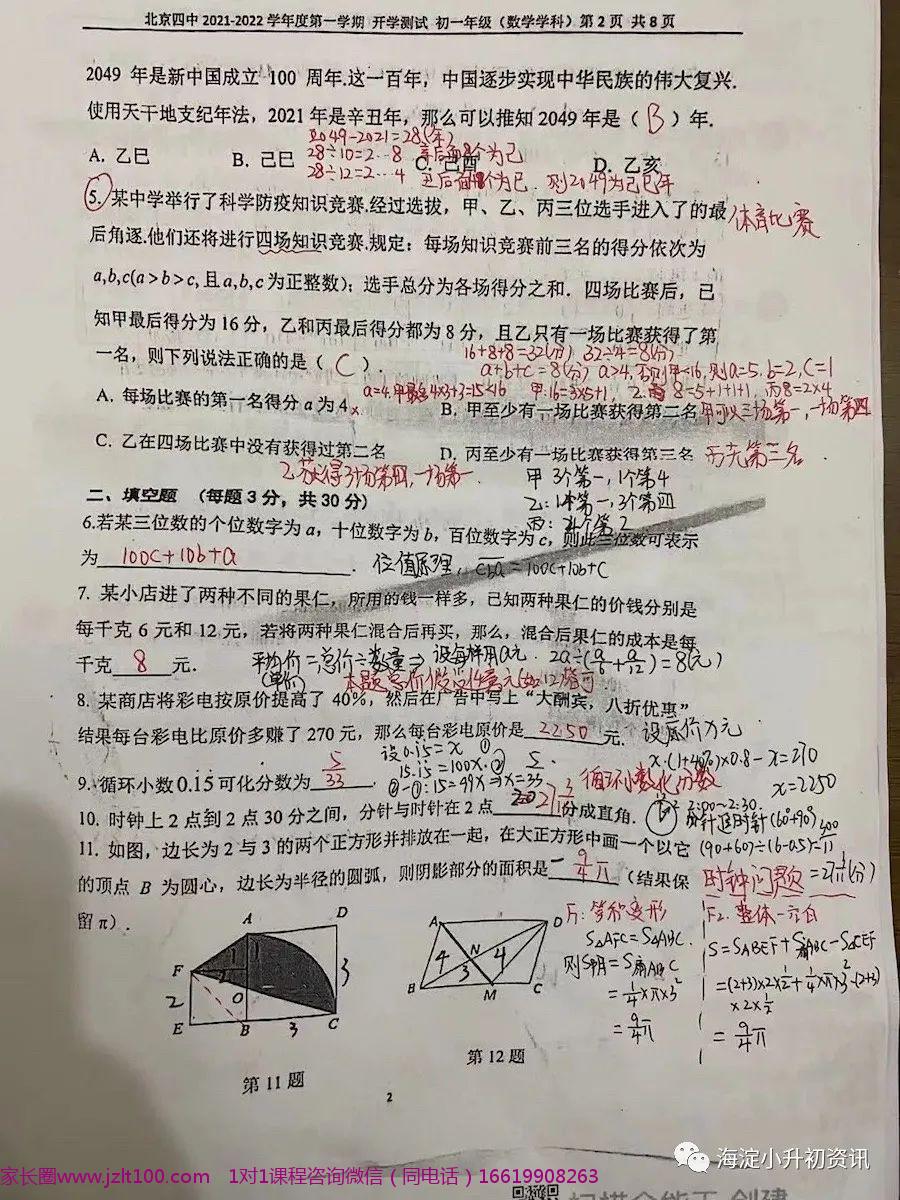 北京四中 2021-2022 学年度第一学期 开学测试 初一年级（数学学科）第 2 页 共 8 页
2049 年是新中国成立 100 周年.这一百年，中国逐步实现中华民族的伟大复兴.
使用天干地支纪年法，2021 年是辛丑年，那么可以推知 2049 年是（ B ）年.
2049-2021=28(年)
A. 乙巳 B. 己巳 C. 己酉 D. 乙亥
28÷10=2…8 辛后面8个为己
28÷12=2…4 丑后面4个为巳. 则2049为己巳年
5. 某中学举行了科学防疫知识竞赛.经过选拔，甲、乙、丙三位选手进入了的最
体育比赛
后角逐.他们还将进行四场知识竞赛.规定：每场知识竞赛前三名的得分依次为
a,b,c(a＞b＞c, 且 a,b,c 为正整数)；选手总分为各场得分之和．四场比赛后，已
知甲最后得分为 16 分，乙和丙最后得分都为 8 分，且乙只有一场比赛获得了第
一名，则下列说法正确的是（ C ）.
16+8+8=32(分) 32÷4=8(分)
a+b+c=8(分) a≥4, 否则甲<16, 则a=5. b=2, C=1
a=4. 甲最多4×3+3=15<16 甲:16=3×5+1, 乙: 8=5+1+1+1, 丙8=2×4
A. 每场比赛的第一名得分 a 为 4 × B. 甲至少有一场比赛获得第二名 甲可以三场第一,一场第四
C. 乙在四场比赛中没有获得过第二名 D. 丙至少有一场比赛获得第三名 丙无第三名
乙获得3场第四, 一场第一.
甲 3个第一, 1个第4
二、填空题 （每题 3 分，共 30 分）
乙: 1个第一, 3个第四
丙: 4个第2
6.若某三位数的个位数字为 a，十位数字为 b，百位数字为 c，则此三位数可表示
为 100C+10b+a ． 位值原理, cba = 100c+10b+c
7. 某小店进了两种不同的果仁，所用的钱一样多，已知两种果仁的价钱分别是
每千克 6 元和 12 元，若将两种果仁混合后再买，那么，混合后果仁的成本是每
千克 8 元． 平均价=总价÷数量⇒设每样用a元. 2a÷(a/6+a/12)=8(元)
(单价) 本题总价假设任意元
8. 某商店将彩电按原价提高了 40%，然后在广告中写上 “大酬宾，八折优惠”
结果每台彩电比原价多赚了 270 元，那么每台彩电原价是 2250 元. 设原价x元
x·(1+40%)×0.8-x=270
x=2250
设 0.15=x ①
15.15=100x ②
9. 循环小数 0.15 可化分数为 5/33 . ②-①:15=99x⇒x=5/33 循环小数化分数
10. 时钟上 2 点到 2 点 30 分之间，分针与时针在 2 点 27 3/11 分成直角. 2:00~2:30.
分针追时针(60°+90°)
(90+60)÷(6-0.5)=300/11
=27 3/11(分)
时钟问题
11. 如图，边长为 2 与 3 的两个正方形并排放在一起，在大正方形中画一个以它
的顶点 B 为圆心，边长为半径的圆弧，则阴影部分的面积是 9/4 π （结果保
留 π）.
A D F E O B C 2 3 3
第 11 题
A D N B M C 4 3 4
第 12 题
F1: 等积变形
S△AFC=S△ABC.
则S阴=S扇ABC
=1/4×π×3²
=9/4π
F2. 整体-空白
S=SABEF+S扇ABC-S△CEF
=(2+3)×2×1/2+1/4×π×3²-(2+3)
×2×1/2
=9/4π
2
海淀小升初资讯
家长圈www.jzlt100.com 1对1课程咨询微信（同电话）16619908263